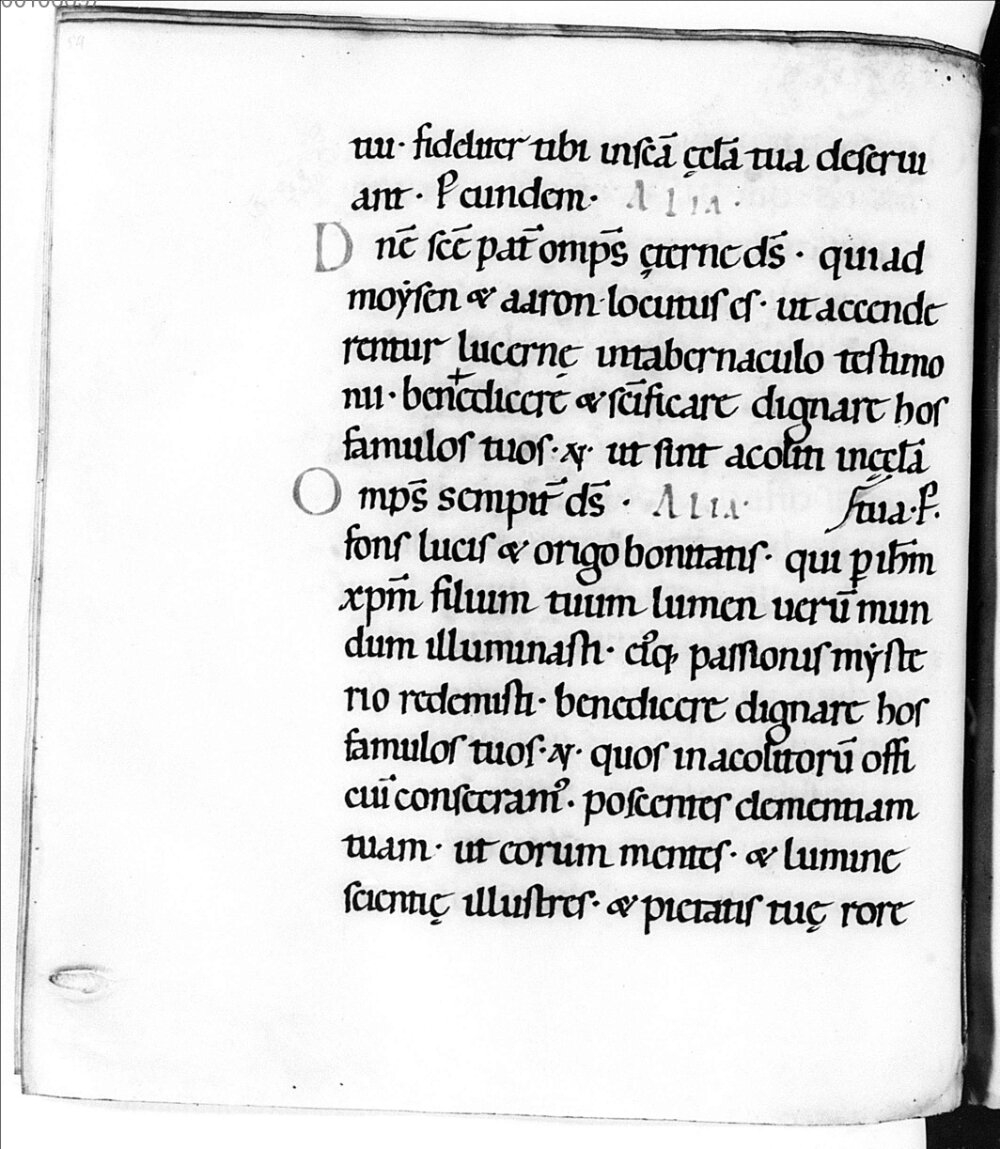 tui· fideliter tibi inscā ęclā tua deserui
ant· P eundem· ALIA·
Dnē scē pat̄ omps̄ ęterne ds̄· qui ad
moẏsen & aaron locutus es· ut accende
rentur lucernę intabernaculo testimo
nii· benedicere & scīficare dignare hos
famulos tuos·N· ut sint acoliti inęcclā
Omps̄ sempit̄ ds̄· ALIA· tua·P.
fons lucis & origo bonitatis· qui ꝑ ihm̄
xpm̄ filium tuum lumen uerū mun
dum illuminasti· eiꝰq; passionis mẏste
rio redemisti· benedicere dignare hos
famulos tuos·N· quos inacolitorū offi
ciū consecramꝰ· poscentes clementiam
tuam· ut eorum mentes· & lumine
scientię illustres· & pietatis tuę rore